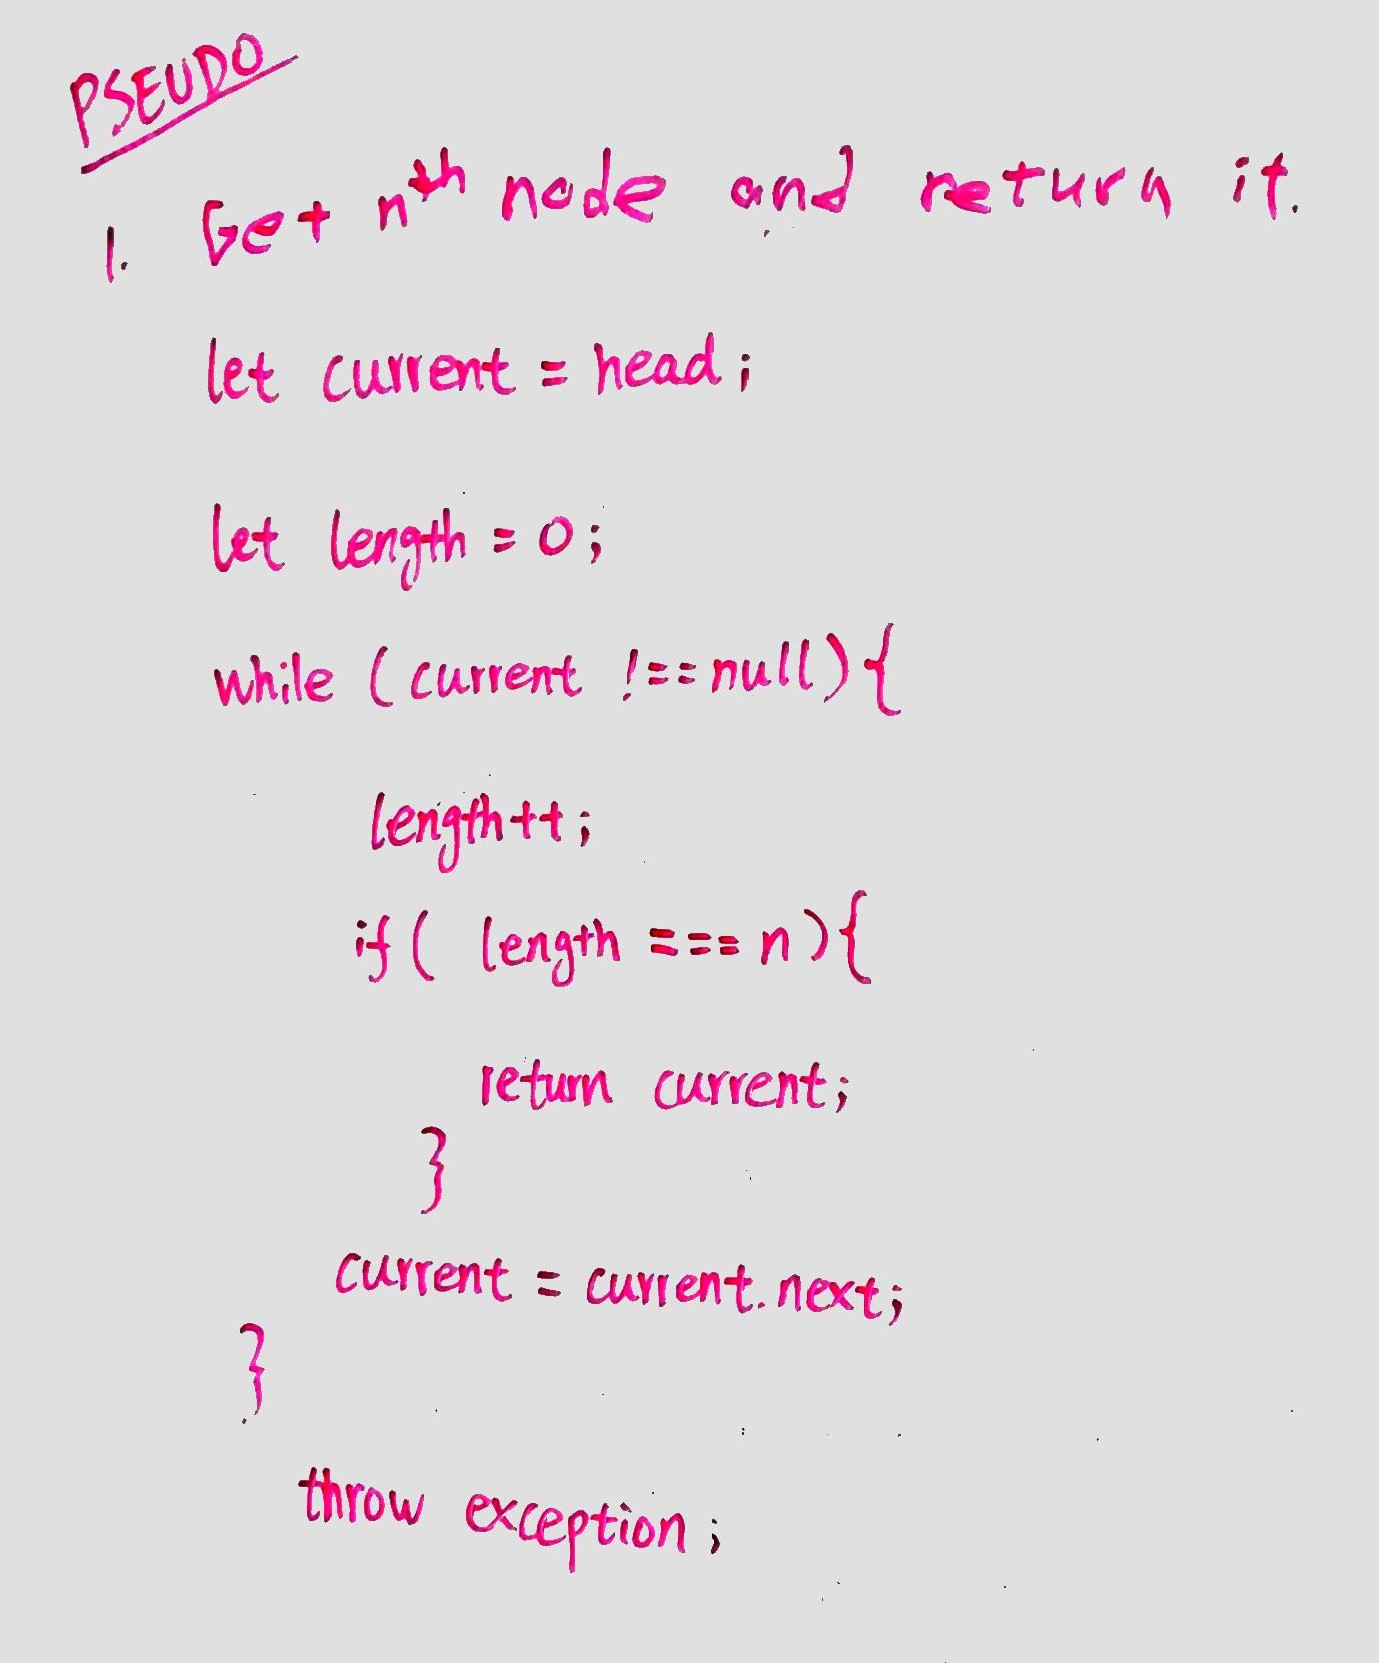 PSEUDO
1. Get nth node and return it.
let current = head;
let length = 0;
while (current !== null){
length++;
if( length === n){
return current;
}
current = current.next;
}
throw exception;